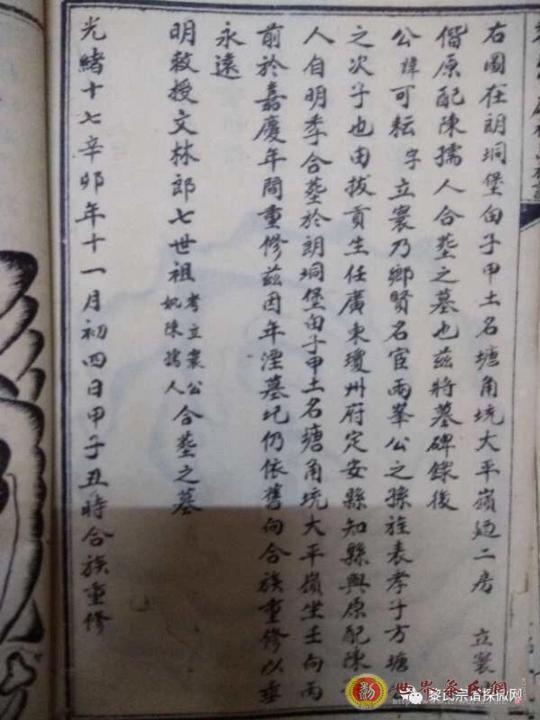 右圖在朗垌堡甸子甲土名塘角坑大平嶺迺二房 立寰
偕原配陳孺人合塟之墓也茲將墓碑錄後
公諱可耘字立寰乃鄉賢名宦兩峯公之孫旌表孝子方塘公
之次子也由拔貢生任廣東瓊州府定安縣知縣與原配陳
人自明季合塟於朗垌堡甸子甲土名塘角坑大平嶺坐壬向丙
前於嘉慶年間重修茲因年湮墓圮仍依舊向合族重修以垂
永遠
明敕授文林郎七世祖考立寰公妣陳孺人合塟之墓
光緒十七辛卯年十一月初四日甲子丑時合族重修
世界黎氏網
黎氏宗谱探微网